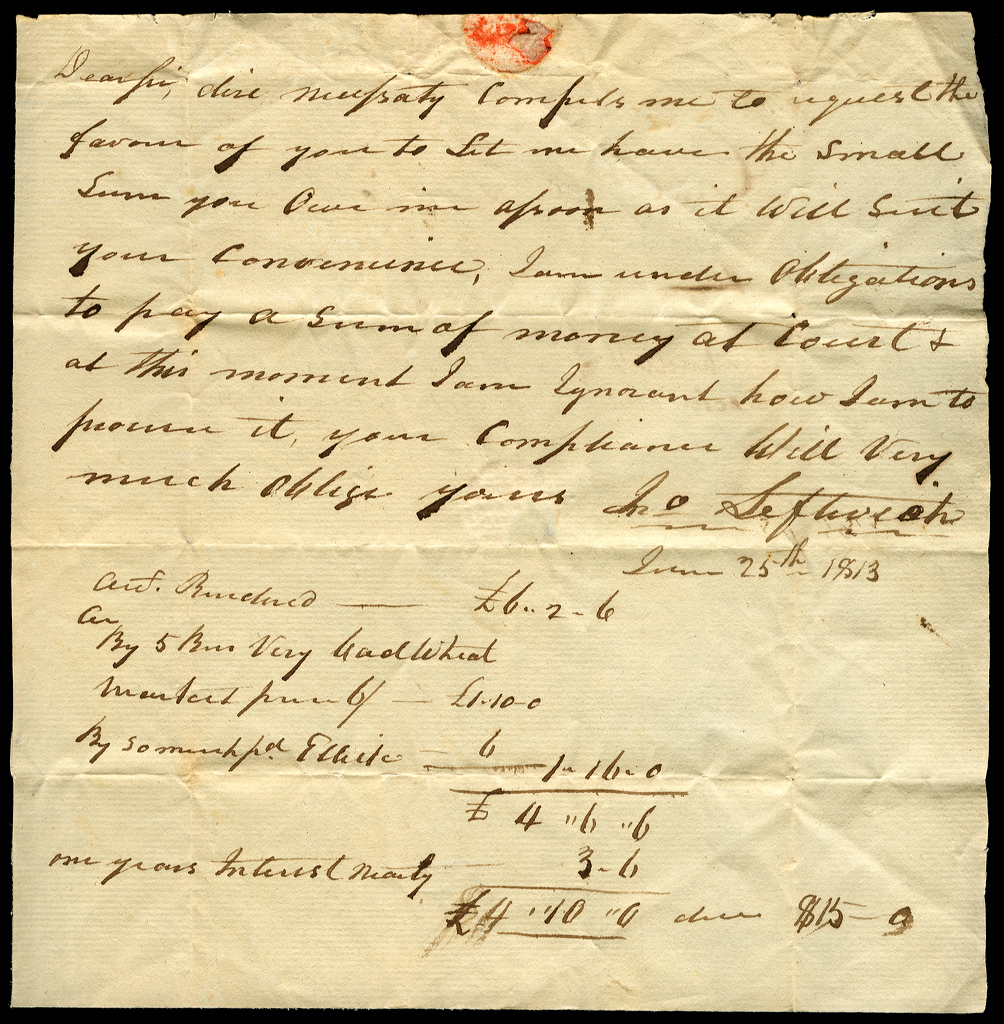 Dear Sir, dire necessaty Compels me to request the
favour of you to Let me have the small
Sum you Owe me as soon as it Will Suit
your Convenience, I am under Obligations
to pay a Sum of money at Court &
at this moment I am Ignorant how I am to
procure it, your Compliance Will Very
much Oblige yours Jno Leftwich
June 25th 1813
Acct. Rendered — £6-2-6
Cr
By 5 Bus Very bad Wheat
Market price 6/ — £1-10-0
By so much pd. Elliott — 6
1-16-0
£ 4 "6 "6
one years Interest nearly — 3-6
£4 "10 "0 due $15-0